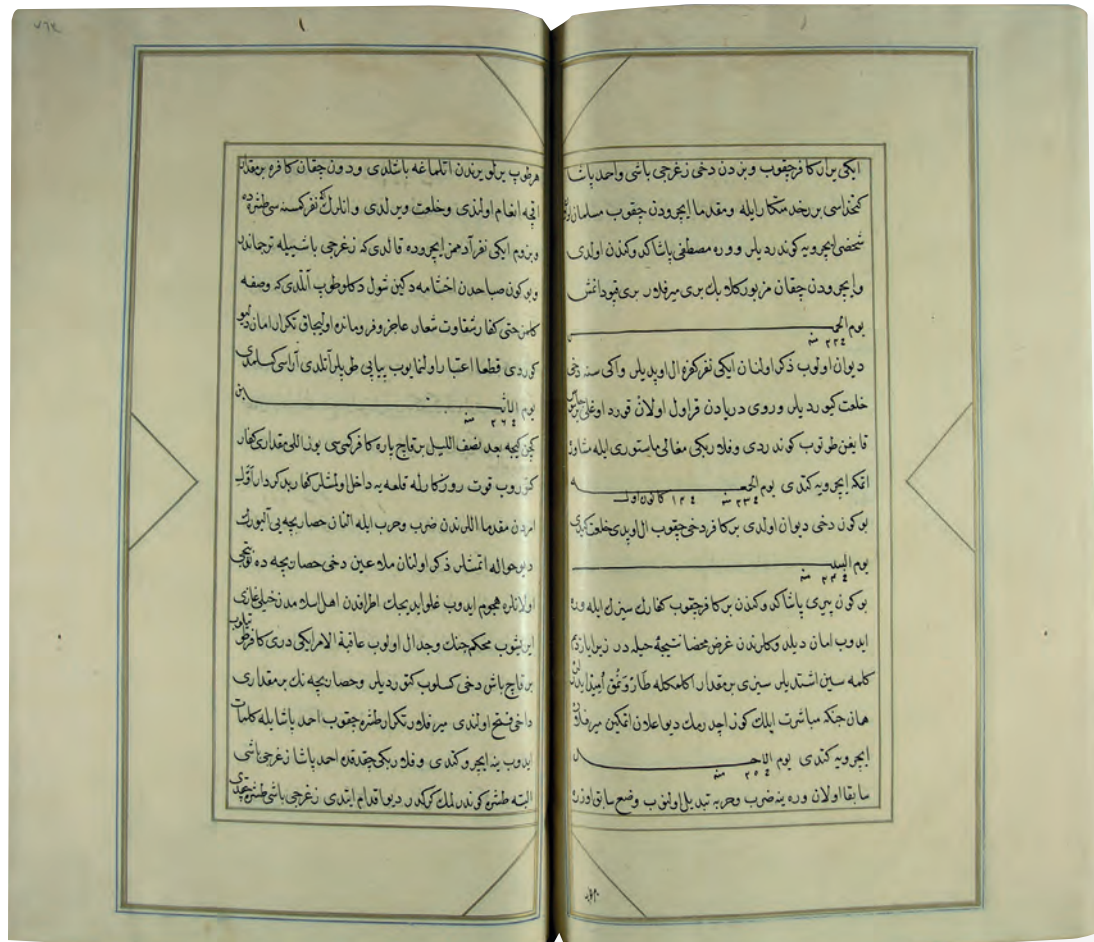 ایکی یرار کافر چقوب و بزدن دخی زغرجی باشی و احمد پاشا
کتخداسی بر یخد متکار ایله و مقدما ایچرودن چقوب مسلمان
شخصی ایچرویه کوندردیلر و وره مصطفی پاشا کدوکندن اولدی
و ایچرودن چقان مزبورلک بری میرفلار بری قپودانمش
یوم
۲۲ منه
دیوان اولوب ذکر اولنان ایکی نفر کفره ال اوپدیلر و اکی سنه دخی
خلعت کیوردیلر و روی دریادن قراول اولان قورد اوغلی
قایغن طوتوب کوندردی و فلاریکی مغالی ماستوری ایله مشاوره
اتمکه ایچرویه کتدی یوم الجمعه
۲۳ منه ۱۲ کانون اول
بوکون دخی دیوان اولدی بر کافر دخی چقوب ال اوپدی خلعت کیدی
یوم السبت
۲۴ منه
بوکون پیری پاشا کدوکندن بر کافر چقوب کفارك سیزك ایله وره
ایدوب امان دیلدوکلرندن غرض محضا نتیجۀ حیله در زیرا یاردم
کلمه سین اشتدیلر سیزی بر مقدار اکلمکله
همان جنکه مباشرت ایلك کوز اچدرمك دیو اعلان اتمکین میرفلار
ایچرویه کتدی یوم الاحد
۲۵ منه
سابقا اولان وره ینه ضرب و حربه تبدیل اولنوب وضع سابق اوزره
هر طوپ یرلو یرندن اتلماغه باشلدی و دون چقان کافره بر مقدار
اقچه انعام اولندی و خلعت ویرلدی و انلرك نفر کسنه سی طشره ده
و بزوم ایکی نفر آدممز ایچروده قالدی که زغرجی باشییله ترجماندر
و بوکون صباحدن اختامه دکین شول دکلو طوپ آتلدی که وصفه
کلمز حتی کفار شقاوت شعار عاجز و فرومانده اولیجاق تکرار امان دیو
کوردی قطعا اعتبار اولنمایوب پیاپی طوپلر آتلدی آراسی کسلمدی
یوم الاثنین
۲۶ منه
کچن کیجه بعد نصف اللیل بر قاچ پاره کافر کمیسی یوز اللی مقداری کفار
کتوروب قوت روزکارله قلعه یه داخل اولمشلر کفار بدکردار اول
امردن مقدما اللرندن ضرب و حرب ایله النان حصاریچه یی آلیورك
دیو حواله اتمشلر ذکر اولنان ملاعین دخی حصاریچه ده
اولانلره هجوم ایدوب غلو ایدیجك اطرافدن اهل اسلامدن خیلی غازی
ایریشوب محکم جنك و جدال اولوب عاقبة الامر ایکی دری کافر
بر قاچ باش دخی کسلوب کتوردیلر و حصاریچه نك بر مقداری
داخی فتح اولندی میرفلار تکرار طشره چقوب احمد پاشا ایله کلمات
ایدوب ینه ایچرو کتدی و فلاریکی چقدقده احمد پاشا زغرجی باشی
البته طشره کوندرلمك کرکدر دیو اقدام ایتدی زغرجی باشی طشره چقدی